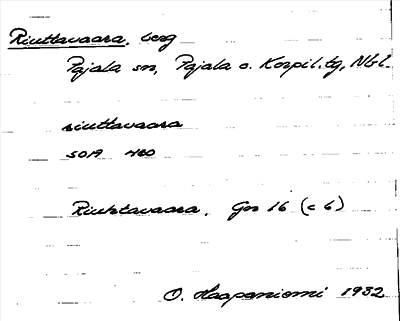 Riuttavaara, berg
Pajala sn, Pajala o. Korpil. tg, Nbl.
riuttavaara
Riuhtavaara, Gs 16 (c 6)
O. Haapaniemi 1932